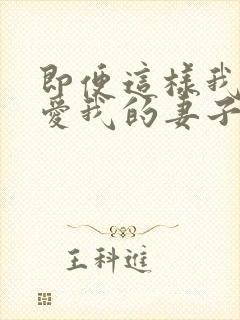 即便這樣我
愛我的妻子
王科進